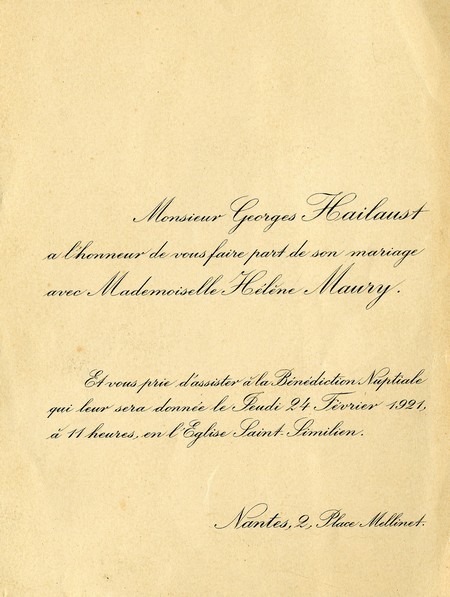 Monsieur Georges Hailaust
a l'honneur de vous faire part de son mariage
avec Mademoiselle Hélène Maury.
Et vous prie d'assister à la Bénédiction Nuptiale
qui leur sera donnée le Jeudi 24 Février 1921,
à 11 heures, en l'Eglise Saint-Similien.
Nantes, 2, Place Mellinet.